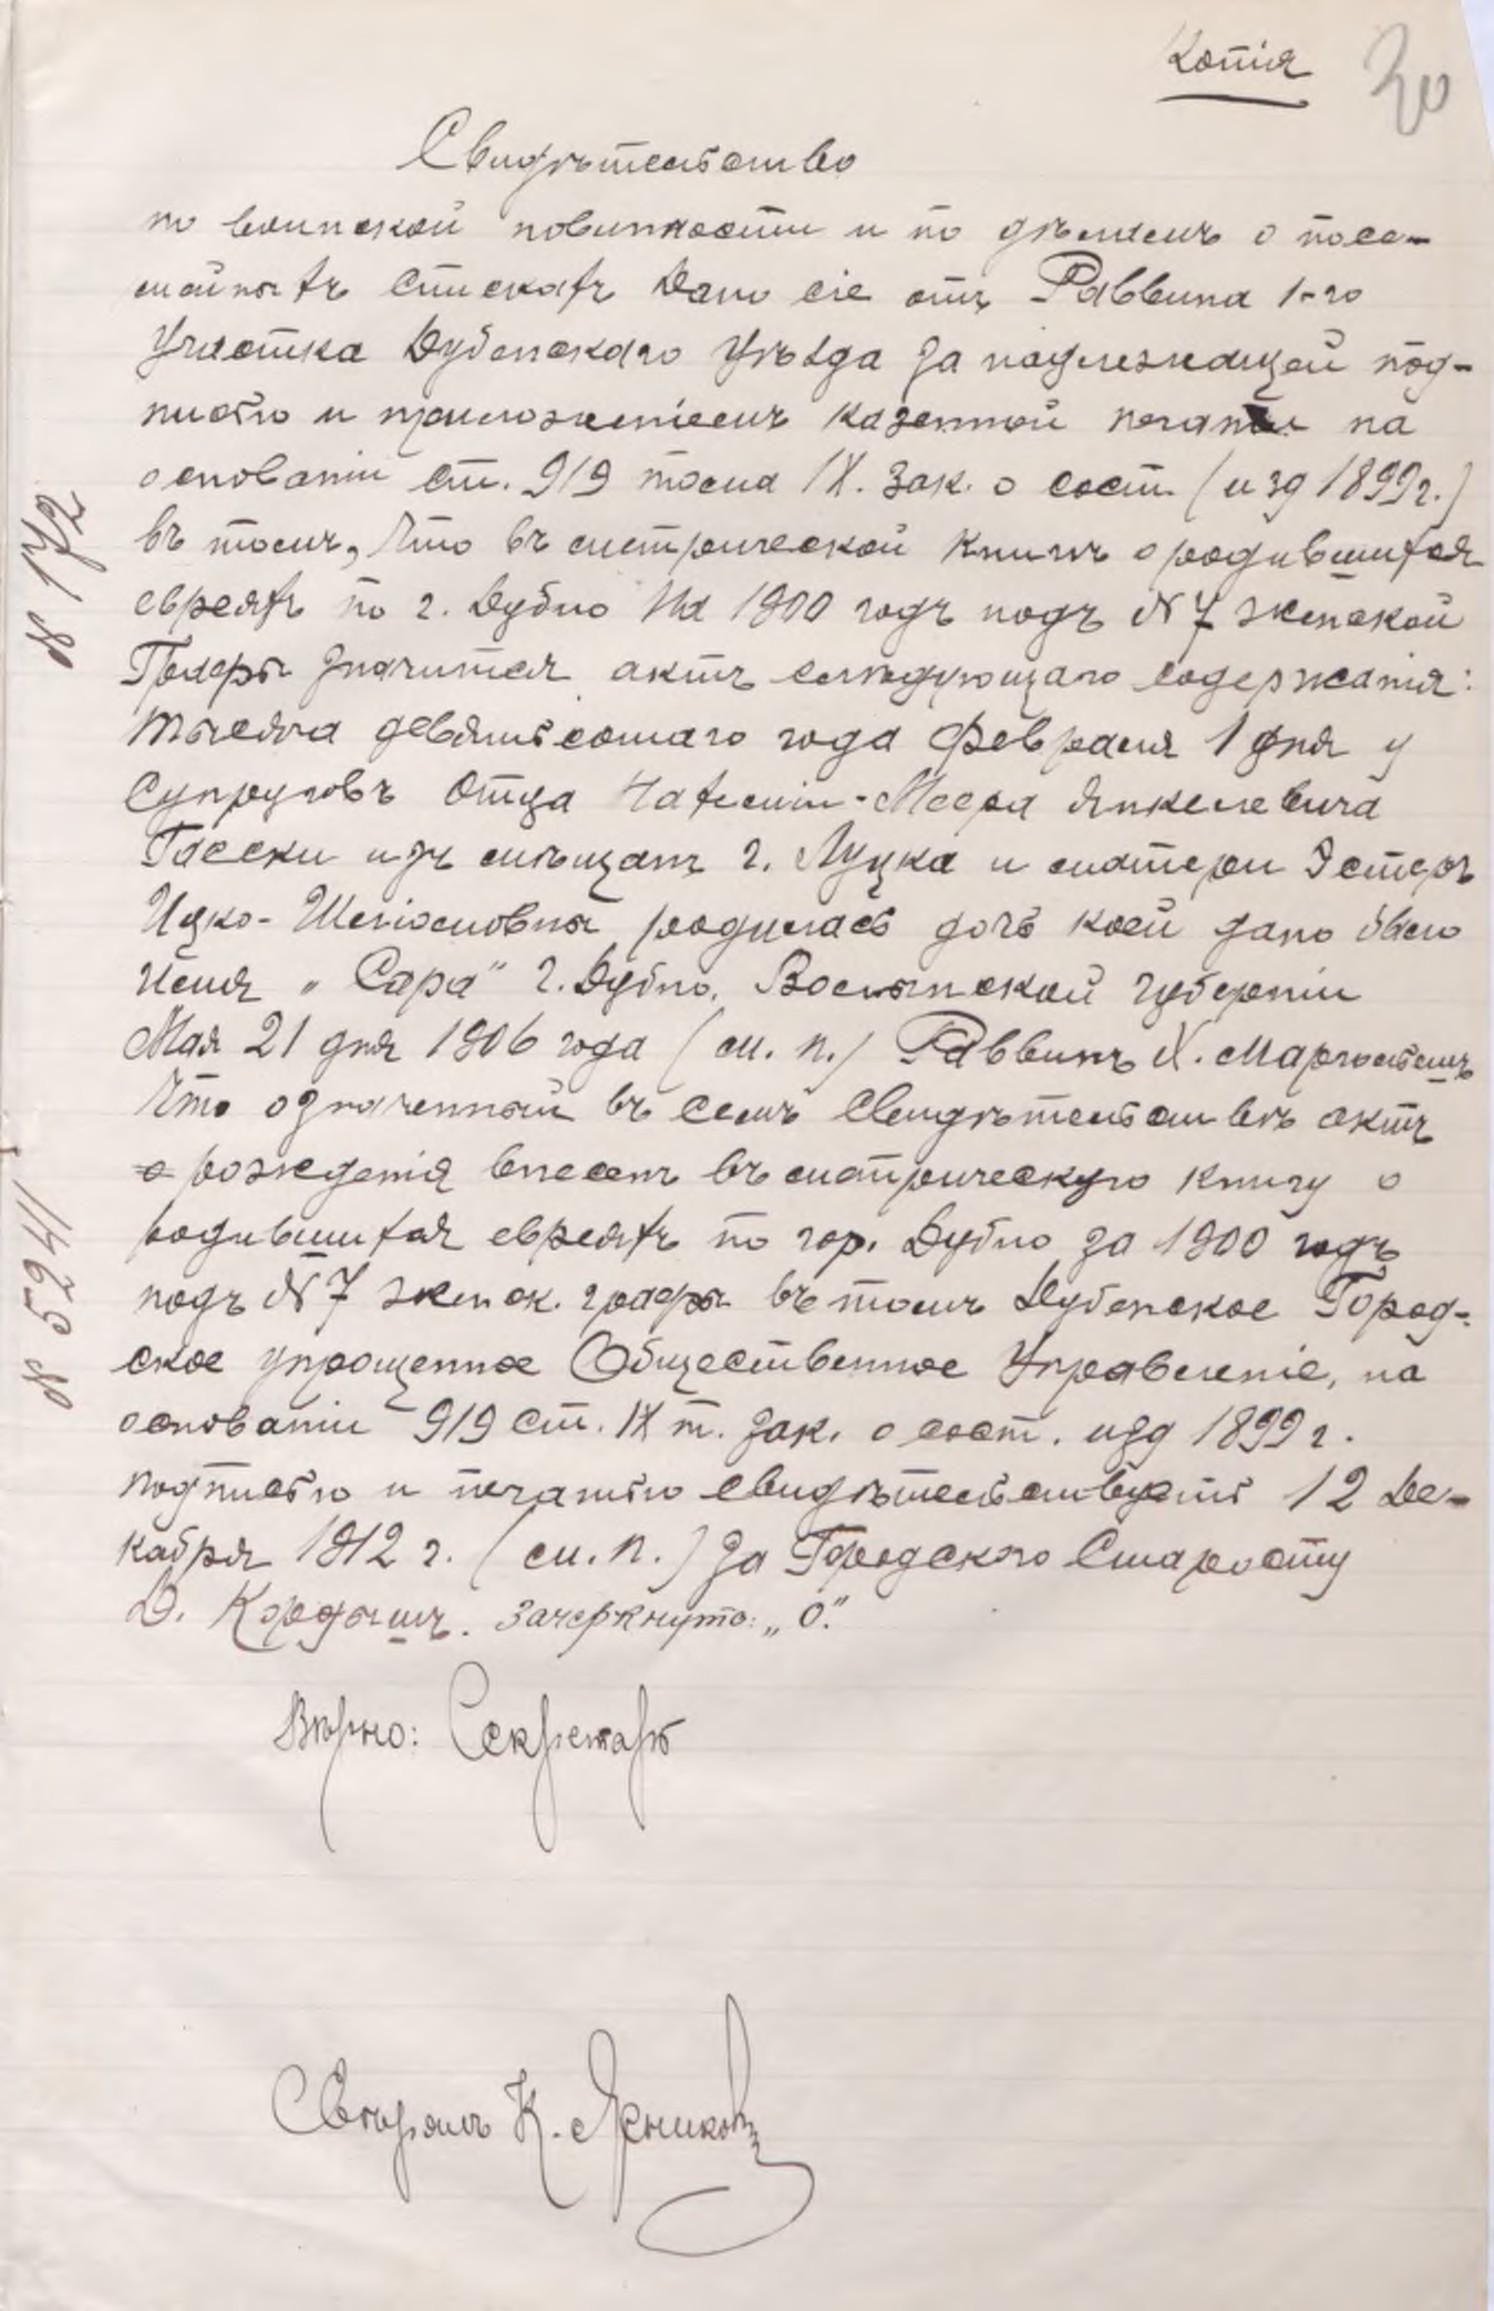 Копія
30
Свидѣтельство
по воинской повинности и по дѣламъ о посе-
мейныхъ спискахъ Дано сіе отъ Раввина 1-го
Участка Дубенскаго Уѣзда за надлежащей под-
писью и приложеніемъ казенной печати на
основаніи ст. 919 тома IX. Зак. о сост. (изд 1899 г.)
въ томъ, Что въ метрической книгѣ о родившихся
евреяхъ по г. Дубно На 1900 годъ подъ № 7 женской
Графы значится актъ слѣдующаго содержанія:
тысяча девятьсотаго года Февраля 1 дня у
Супруговъ Отца Нахмии-Меера Янкелевича
Гасски изъ мѣщанъ г. Луцка и матери Эстеръ
Ицко-Шеліомовны родилась дочь коей дано было
Имя „Сара“ г. Дубно. Волынской губерніи
Мая 21 дня 1906 года (м. п.) Раввинъ Х. Марголь
Что означенный въ семъ Свидѣтельствѣ актъ
о рожденія внесенъ въ метрическую книгу о
родившихся евреяхъ по гор. Дубно за 1900 годъ
подъ № 7 женск. графы въ томъ Дубенское Город-
ское упрощенное Общественное Управленіе, на
основаніи 919 ст. IX т. Зак. о сост. изд 1899 г.
подписью и печатью свидѣтельствуетъ 12 Де-
кабря 1912 г. (м. п.) За Городского Старосту
Д. Кордышъ. Зачеркнуто: „О“.
Вѣрно: Секретарь
Свѣрялъ К.
№ 172
№ 5241